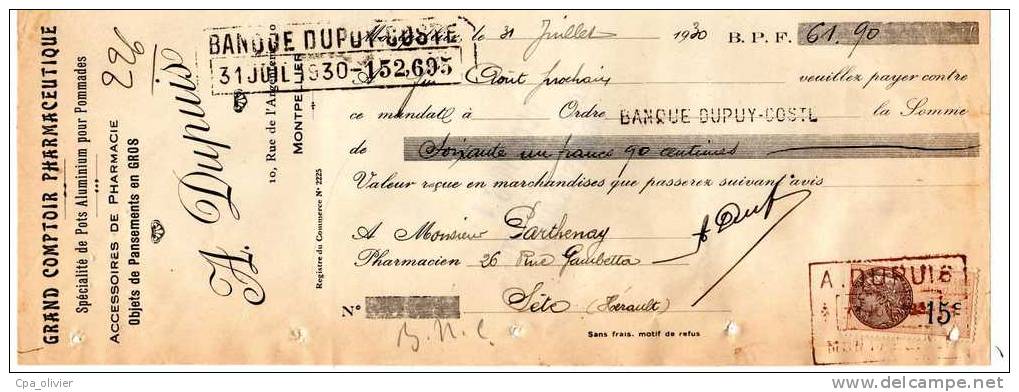 GRAND COMPTOIR PHARMACEUTIQUE
Spécialité de Pots Aluminium pour Pommades
ACCESSOIRES DE PHARMACIE
Objets de Pansements en GROS
226
A. Dupuis
10, Rue de l'Argenterie, 10
MONTPELLIER
Registre du Commerce Nº 2225
BANQUE DUPUY-COSTE
31 JUIL 1930-152,695
le 31 Juillet 1930 B. P. F. 61.90
fin Aout prochain veuillez payer contre
ce mandat à Ordre BANQUE DUPUY-COSTE la Somme
de Soixante un francs 90 centimes
Valeur reçue en marchandises que passerez suivant avis
A Monsieur Parthenay
Pharmacien 26 Rue Gambetta
Sète (Hérault)
Nº
B.N.C.
Sans frais, motif de refus
A. DUPUIS
15c
Cpa_olivier
delcampe.net